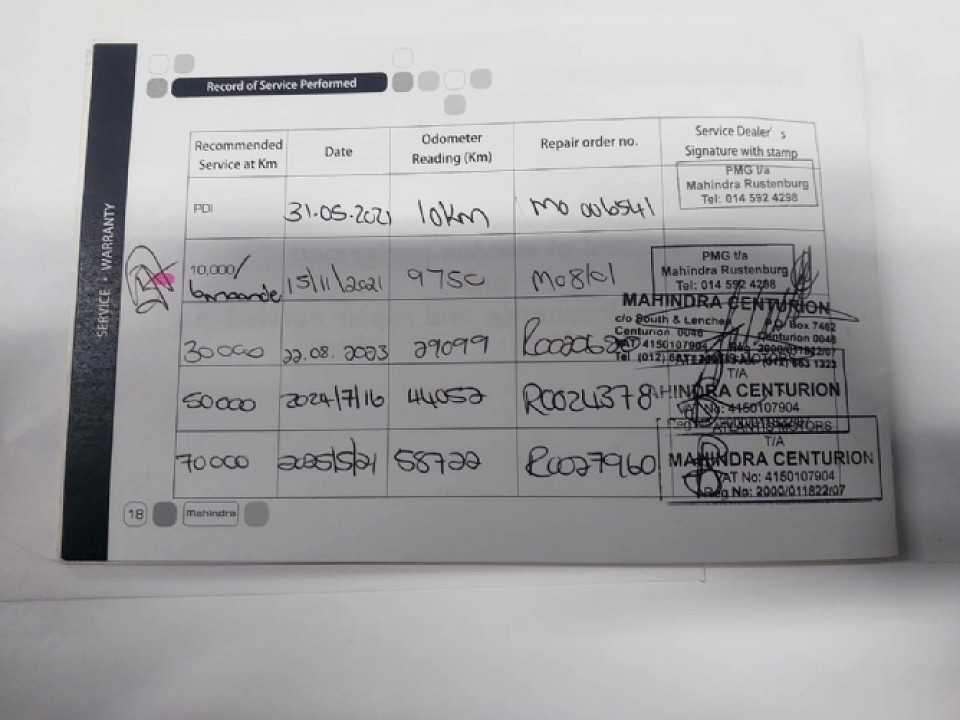 Record of Service Performed
SERVICE • WARRANTY
Recommended Service at Km
Date
Odometer Reading (Km)
Repair order no.
Service Dealer's Signature with stamp
PDI
31.05.2021
10km
M0 006541
PMG t/a
Mahindra Rustenburg
Tel: 014 592 4298
10,000/
15/11/2021
9750
PMG t/a
Mahindra Rustenburg
Tel: 014 592 4298
30000
22.08.2023
29099
MAHINDRA CENTURION
c/o South & Lenchen
P O Box 7462
Centurion 0046
Centurion 0046
VAT 4150107904
Reg 2000/011822/07
50000
2024/7/16
44052
R0024378
T/A
MAHINDRA CENTURION
VAT No: 4150107904
70000
2025/5/21
58722
R0027960
ATLANTIS MOTORS
T/A
MAHINDRA CENTURION
VAT No: 4150107904
Reg No: 2000/011822/07
18
Mahindra